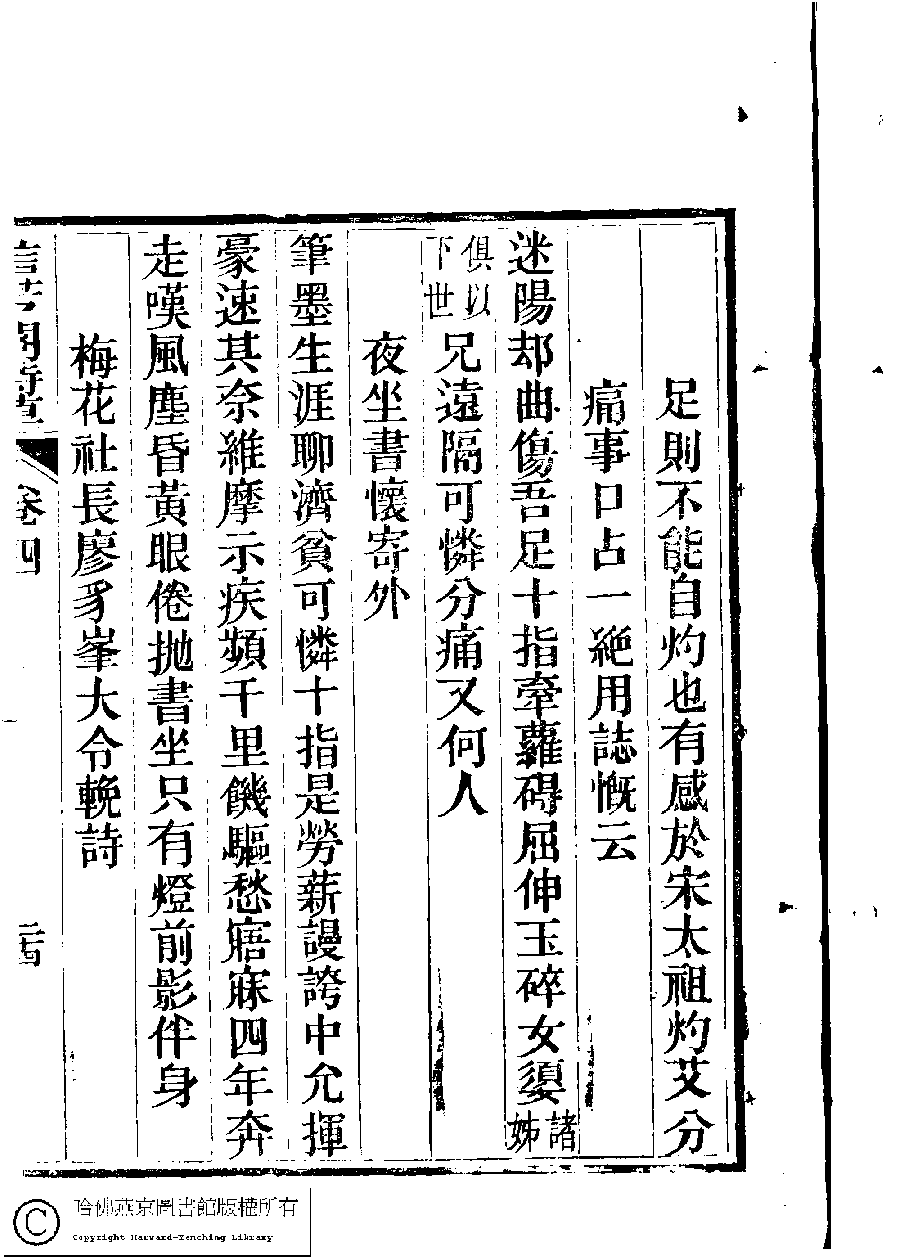 足則不能自灼也有感於宋太祖灼艾分
痛事口占一絶用誌慨云
迷陽却曲傷吾足十指牽蘿碍屈伸玉碎女嬃諸姊
俱以下世兄遠隔可憐分痛又何人
夜坐書懷寄外
筆墨生涯聊濟貧可憐十指是勞薪謾誇中允揮
豪速其奈維摩示疾頻千里饑驅愁寤寐四年奔
走嘆風塵昏黃眼倦抛書坐只有燈前影伴身
梅花社長廖豸峯大令輓詩
卷四
二古
哈佛燕京圖書館版權所有
Copyright Harvard-Yenching Library